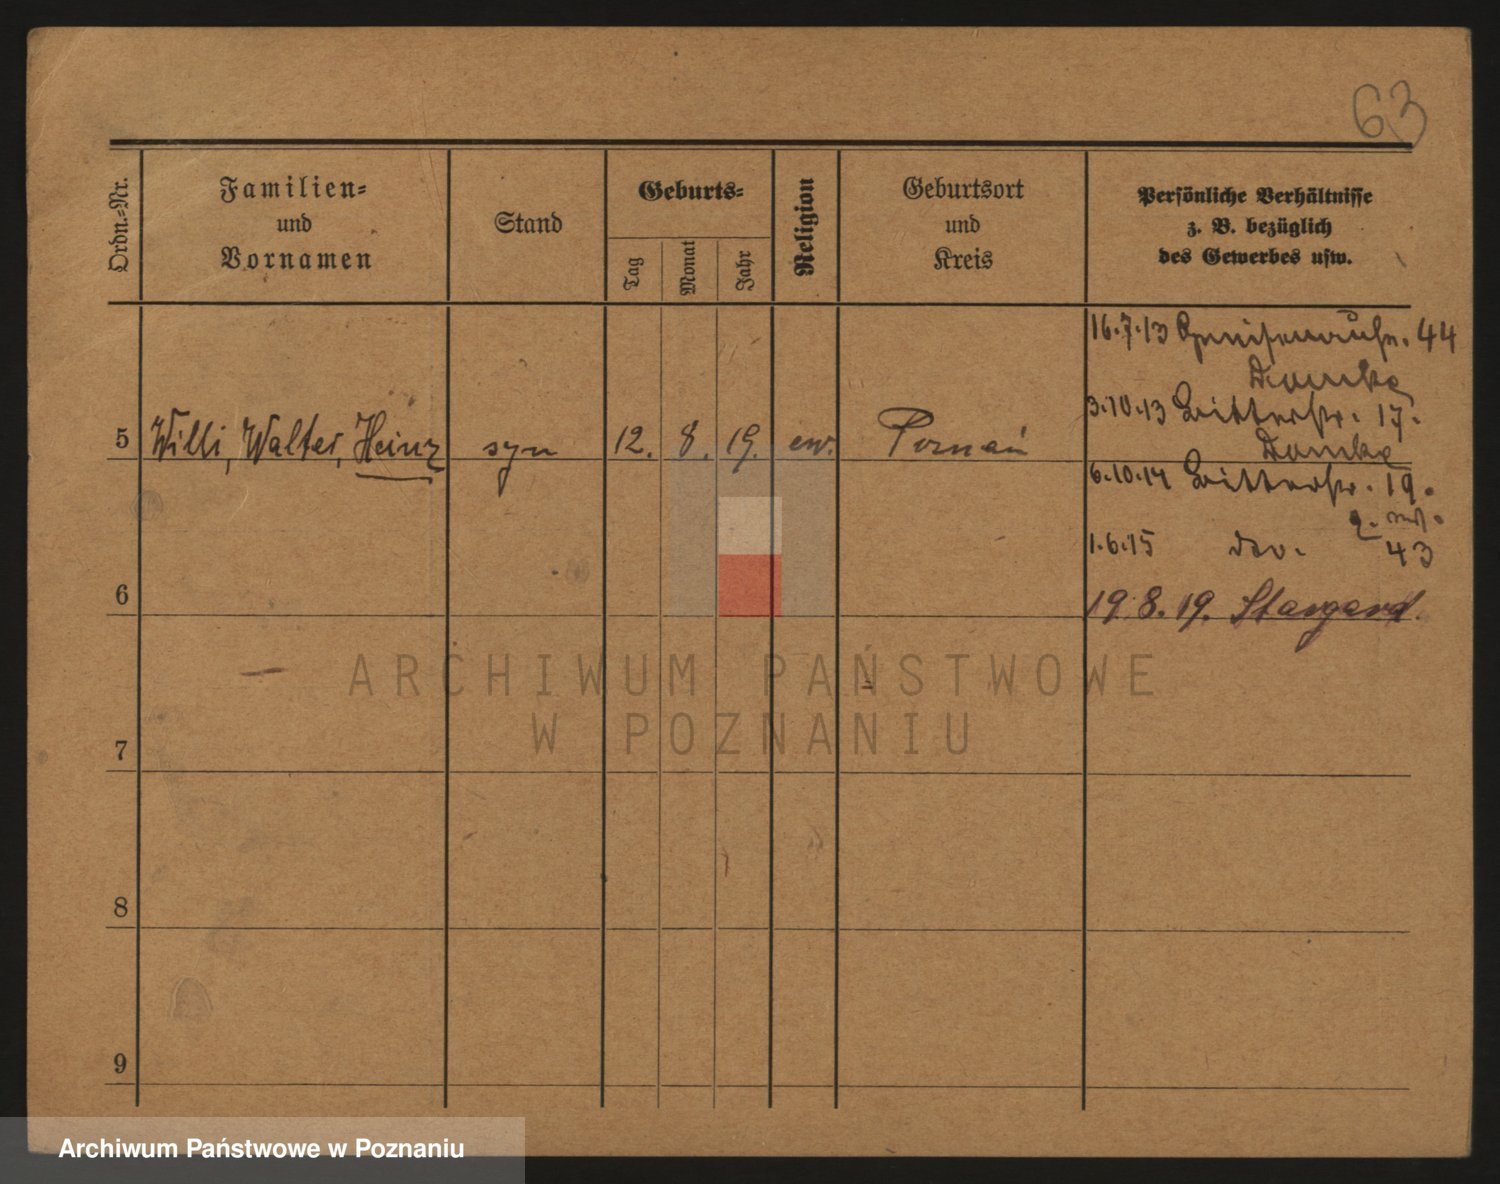 63
Ordn.=Nr.
Familien=
und
Vornamen
Stand
Geburts=
Tag
Monat
Jahr
Religion
Geburtsort
und
Kreis
Persönliche Verhältnisse
z. B. bezüglich
des Gewerbes usw.
16.7.13 Gneisenaustr. 44
Domke
3.10.13 Ritterstr. 17.
Domke
5 Willi, Walter, Heinz syn 12. 8. 19. ew. Poznań
6.10.14 Ritterstr. 19.
1.6.15 43
6
19.8.19. Stargard.
ARCHIWUM PAŃSTWOWE
W POZNANIU
7
8
9
Archiwum Państwowe w Poznaniu